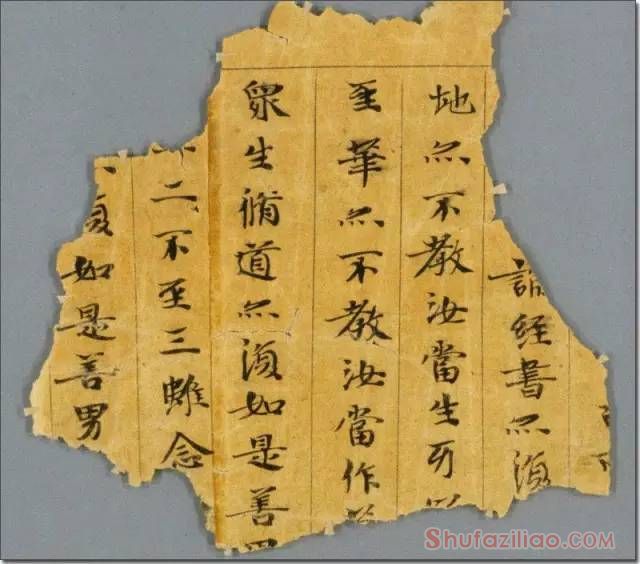 誦経書亦復
地亦不教汝當生牙以
至華亦不教汝當作
衆生脩道亦復如是善
二不至三雖念
復如是善男
Shufaziliao.COM